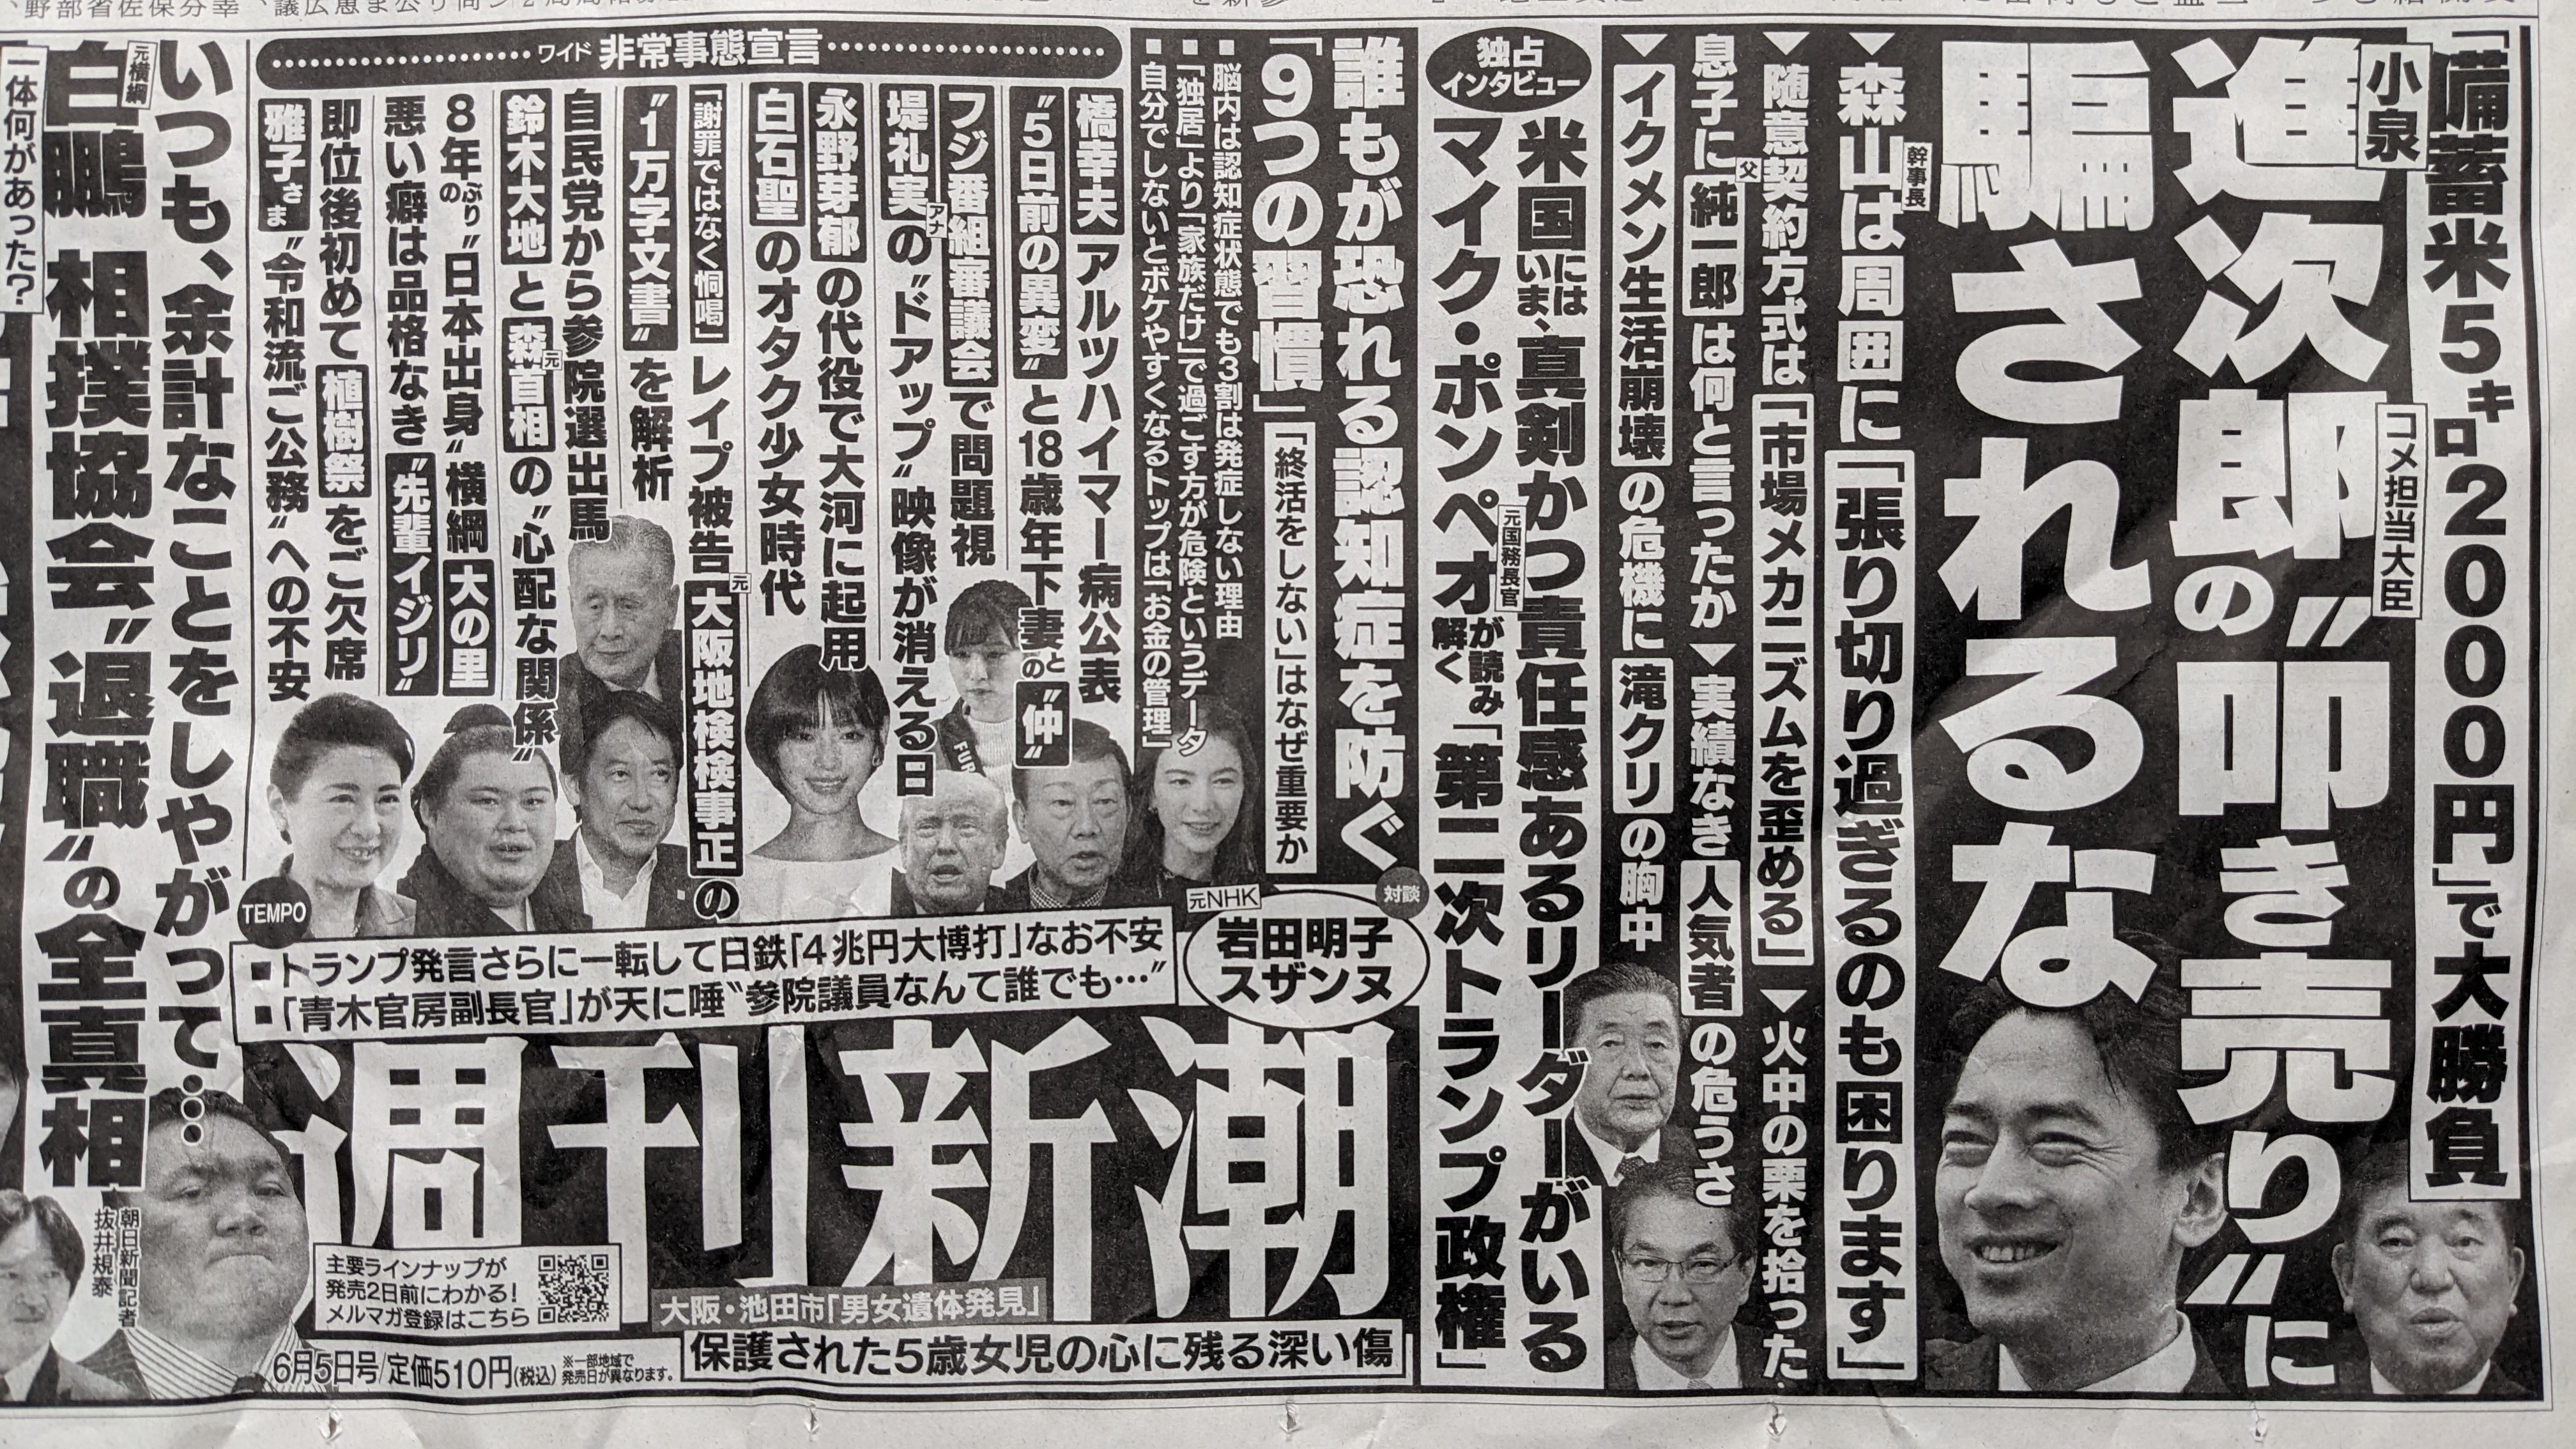 「備蓄米5キロ2000円」で大勝負
小泉
進次郎の〝叩き売り〟に
コメ担当大臣
騙されるな
▼森山幹事長は周囲に「張り切り過ぎるのも困ります」
▼随意契約方式は「市場メカニズムを歪める」▼火中の栗を拾った
息子に父純一郎は何と言ったか▼実績なき人気者の危うさ
▼イクメン生活崩壊の危機に滝クリの胸中
独占インタビュー
米国にはいま、真剣かつ責任感あるリーダーがいる
マイク・ポンペオ元国務長官が読み解く「第二次トランプ政権」
誰もが恐れる認知症を防ぐ
「9つの習慣」
「終活をしない」はなぜ重要か
■脳内は認知症状態でも3割は発症しない理由
■「独居」より「家族だけ」で過ごす方が危険というデータ
■自分でしないとボケやすくなるトップは「お金の管理」
ワイド 非常事態宣言
橋幸夫アルツハイマー病公表
〝5日前の異変〟と18歳年下妻との〝仲〟
フジ番組審議会で問題視
堤礼実アナの〝ドアップ〟映像が消える日
永野芽郁の代役で大河に起用
白石聖のオタク少女時代
「謝罪ではなく恫喝」レイプ被告元大阪地検検事正の
〝1万字文書〟を解析
自民党から参院選出馬
鈴木大地と森元首相の〝心配な関係〟
8年ぶりの〝日本出身〟横綱大の里
悪い癖は品格なき〝先輩イジリ〟
即位後初めて植樹祭をご欠席
雅子さま〝令和流ご公務〟への不安
FUR
対談
元NHK
岩田明子
スザンヌ
TEMPO
■トランプ発言さらに一転して日鉄「4兆円大博打」なお不安
■「青木官房副長官」が天に唾〝参院議員なんて誰でも…〟
いつも、余計なことをしやがって……
元横綱
白鵬 相撲協会〝退職〟の全真相
一体何があった?
朝日新聞記者
抜井規泰
週刊新潮
主要ラインナップが
発売2日前にわかる!
メルマガ登録はこちら
大阪・池田市「男女遺体発見」
保護された5歳女児の心に残る深い傷
6月5日号/定価510円(税込)
※一部地域で
発売日が異なります。